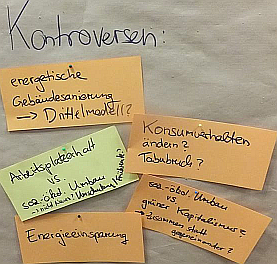 Kontroversen:
energetische
Gebäudesanierung
→ Drittelmodell?
Konsumverhalten
ändern?
Tabubruch?
Arbeitsplatzerhalt
vs.
soz.-ökol. Umbau
soz.-ökol. Umbau
vs.
grüner Kapitalismus?
→ zusammen statt
gegeneinander?
Energieeinsparung